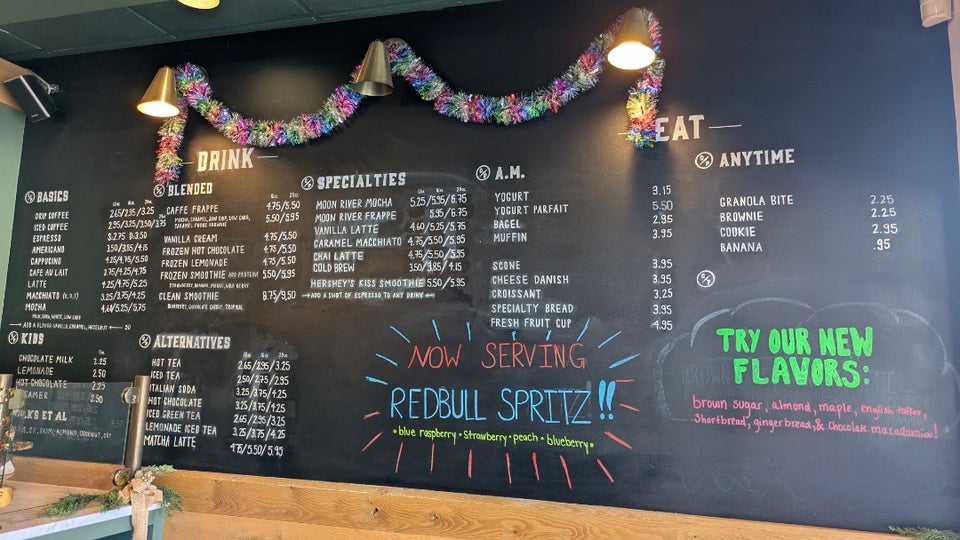 DRINK
BASICS
DRIP COFFEE 2.65/2.95/3.25
ICED COFFEE 2.95/3.25/3.50/3.75
ESPRESSO S:2.75 D:3.50
AMERICANO 3.50/3.95/4.15
CAPPUCINO 4.25/4.75/5.25
CAFE AU LAIT 3.75/4.25/4.75
LATTE 4.25/4.75/5.25
MACCHIATO 3.25/3.75/4.25
MOCHA 4.60/5.25/5.75
MILK, DARK, WHITE, LOW CARB
ADD A FLAVOR-VANILLA, CARAMEL, HAZELNUT 50
KIDS
CHOCOLATE MILK 2.25
LEMONADE 2.50
HOT CHOCOLATE 2.25
2.50
BLENDED
16oz. 20oz.
CAFFE FRAPPE 4.75/5.50
5.50/5.95
VANILLA CREAM 4.75/5.50
FROZEN HOT CHOCOLATE 4.75/5.50
FROZEN LEMONADE 4.75/5.50
FROZEN SMOOTHIE ADD PROTEIN 5.50/5.95
CLEAN SMOOTHIE 8.75/9.50
BLUEBERRY, CHOCOLATE CHERRY, TROPICAL
ALTERNATIVES
12oz. 16oz. 20oz.
HOT TEA 2.65/2.95/3.25
ICED TEA 2.50/2.75/2.95
ITALIAN SODA 3.25/3.75/4.25
HOT CHOCOLATE 3.25/3.75/4.25
ICED GREEN TEA 2.65/2.95/3.25
LEMONADE ICED TEA 3.25/3.75/4.25
MATCHA LATTE 4.75/5.50/5.95
SPECIALTIES
12oz. 16oz. 20oz.
MOON RIVER MOCHA 5.25/5.95/6.75
MOON RIVER FRAPPE 5.95/6.75
VANILLA LATTE 4.60/5.25/5.75
CARAMEL MACCHIATO 4.75/5.50/5.95
CHAI LATTE 4.75/5.50/5.95
COLD BREW 3.50/3.85/4.15
HERSHEY'S KISS SMOOTHIE 5.50/5.95
ADD A SHOT OF ESPRESSO TO ANY DRINK
EAT
A.M.
YOGURT 3.15
YOGURT PARFAIT 5.50
BAGEL 2.95
MUFFIN 3.95
SCONE 3.95
CHEESE DANISH 3.95
CROISSANT 3.25
SPECIALTY BREAD 3.95
FRESH FRUIT CUP 4.95
ANYTIME
GRANOLA BITE 2.25
BROWNIE 2.25
COOKIE 2.95
BANANA .95
NOW SERVING
REDBULL SPRITZ!!
• blue raspberry • strawberry • peach • blueberry •
TRY OUR NEW
FLAVORS:
brown sugar, almond, maple, english toffee,
Shortbread, gingerbread, & chocolate macadamia!